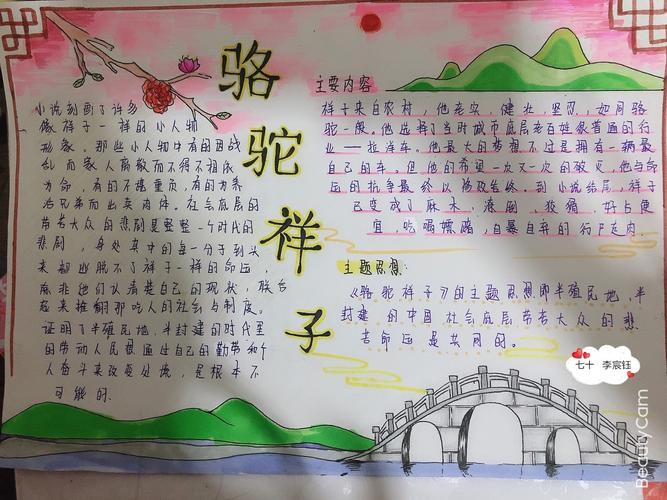 骆驼祥子
小说刻画了许多
像祥子一样的小人物
形象，那些小人物中有的因战
乱而家人离散而不得不相依
为命，有的不堪重负，有的为养
活兄弟而出卖肉体。社会底层的
劳苦大众的悲剧是整整一个时代的
悲剧，身处其中的每一分子到头
来都逃脱不了祥子一样的命运，
除非他们认清楚自己的现状，联合
起来推翻那吃人的社会与制度。
证明了半殖民地、半封建的时代里
的劳动人民想通过自己的勤劳和个
人奋斗来改变处境，是根本不
可能的、
主要内容
祥子来自农村，他老实、健壮、坚忍，如同骆
驼一般。他选择了当时城市底层老百姓很普通的行
业——拉洋车。他最大的梦想不过是拥有一辆最
自己的车。但他的希望一次又一次的破灭，他与命
运的抗争最终以惨败告终。到小说结尾，祥子
已变成了麻木、潦倒、狡猾、好占便
宜、吃喝嫖赌，自暴自弃的行尸走肉
主题思想：
《骆驼祥子》的主题思想即半殖民地、半
封建的中国社会底层劳苦大众的悲
苦命运是共同的。
七十 李宸钰
BeautyCam